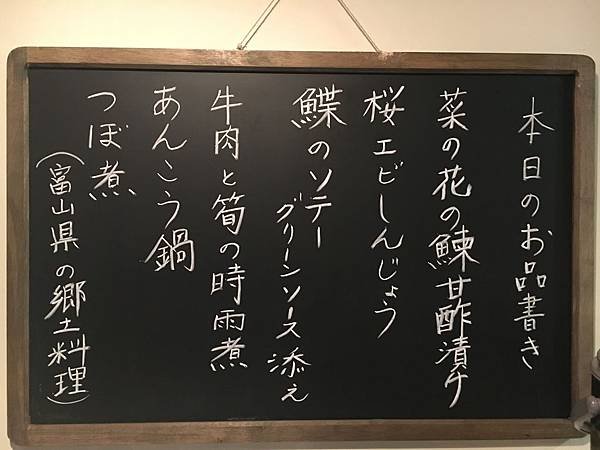 本日のお品書き
菜の花の鰊甘酢漬け
桜エビしんじょう
鰈のソテー
グリーンソース添え
牛肉と筍の時雨煮
あんこう鍋
つぼ煮
(富山県の郷土料理)